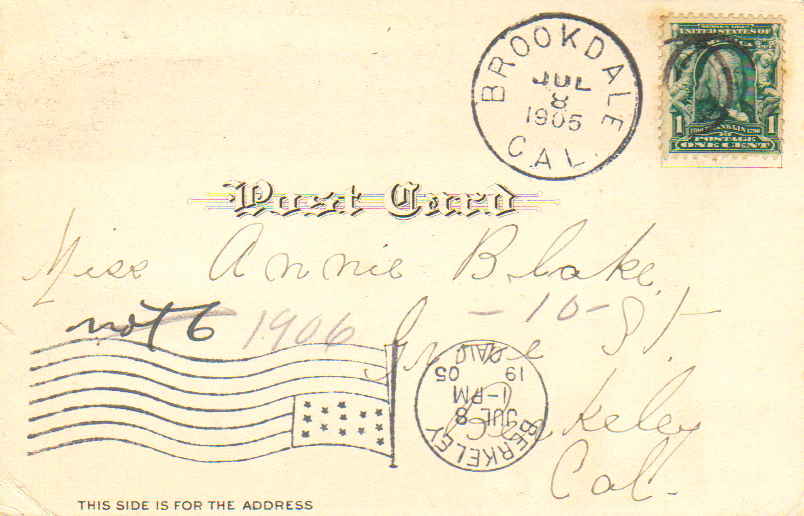 BROOKDALE
JUL
8
1905
CAL.
UNITED STATES OF
1 FRANKLIN 1
POSTAGE
ONE CENT
Post Card
Miss Annie Blake
not 6 1906 - 10 - St.
Grove
BERKELEY
JUL 8
1-PM
19 05
CAL
Berkeley
Cal.
THIS SIDE IS FOR THE ADDRESS